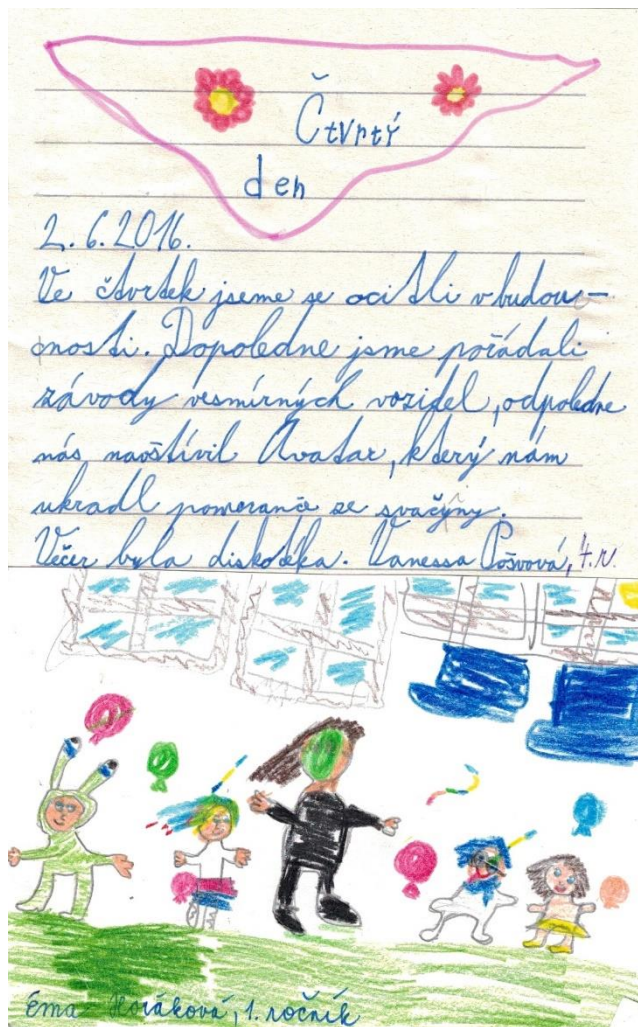 Čtvrtý
den
2. 6. 2016.
Ve čtvrtek jseme se ocitli v budou-
cnosti. Dopoledne jsme pořádali
závody vesmírných vozidel, odpoledne
nás navštívil Avatar, který nám
ukradl pomeranče ze svačiny.
Večer byla diskotéka. Vanessa Pošvová, 4. r.
Ema Horáková, 1. ročník